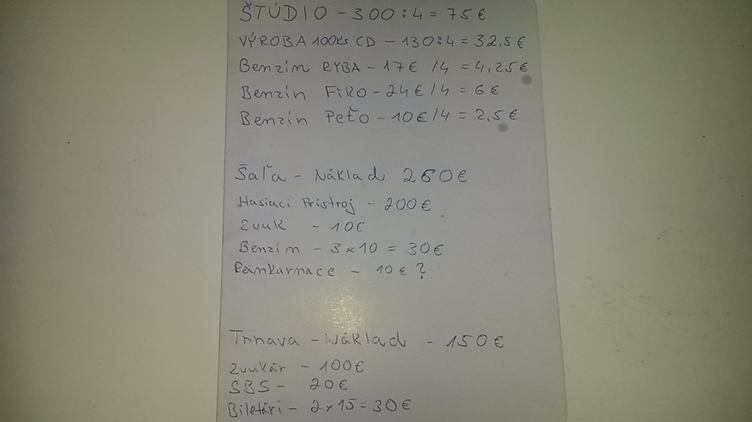 ŠTÚDIO - 300:4 = 75€
VÝROBA 100ks CD - 130:4 = 32,5€
Benzín RYBA - 17€ /4 = 4,25€
Benzín FIKO - 24€/4 = 6€
Benzín PEŤO - 10€/4 = 2,5€
Šaľa - Náklad 260€
Hasiaci Prístroj - 200€
Zvuk - 10€
Benzín - 3x10 = 30€
Pankarnace - 10€?
Trnava - Náklad - 150€
Zvukár - 100€
SBS - 20€
Biletári - 2x15=30€